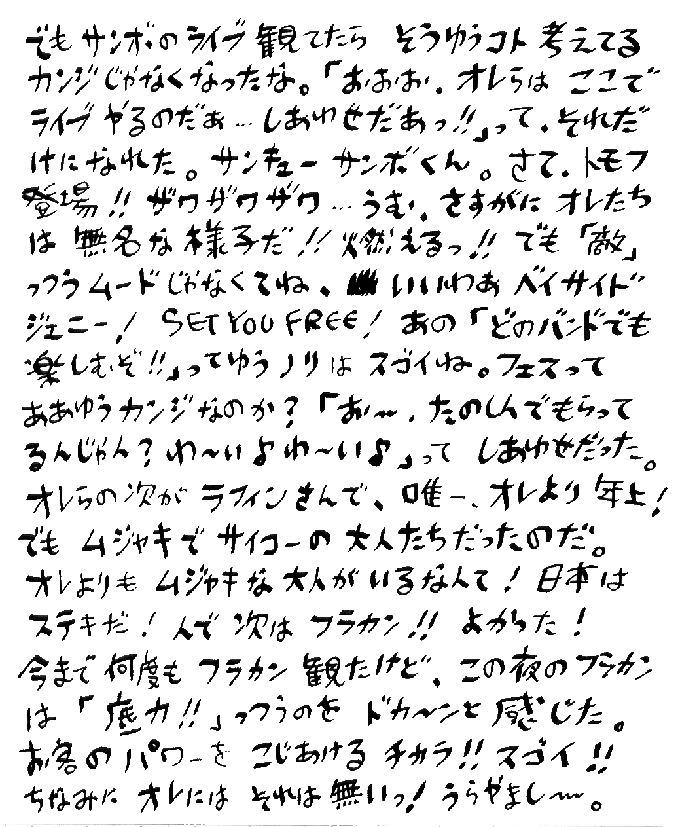 でもサンボのライブ観てたら そうゆうコト考えてる
カンジじゃなくなったな。「おおお、オレらは ここで
ライブやるのだぁ…しあわせだあっ!!」って、それだ
けになれた。サンキュー サンボくん。さて、トモフ
登場!! ザワザワザワ…うむ、さすがに オレたち
は 無名な様子だ!! 燃えるっ!! でも「敵」
っつうムードじゃなくてね、いいわあ ベイサイド
ジェニー! SET YOU FREE! あの「どのバンドでも
楽しむぞ!!」ってゆうノリは スゴイね。フェスって
ああゆうカンジなのか?「お〜、たのしんでもらって
るんじゃん?わ〜いよわ〜いよ」って しあわせだった。
オレらの次が ラフィンさんで、唯一、オレより年上!
でも ムジャキで サイコーの 大人たちだったのだ。
オレよりも ムジャキな大人がいるなんて! 日本は
ステキだ! んで 次は フラカン!! よかった!
今まで 何度も フラカン 観たけど、この夜のフラカン
は「底力!!」っつうのを ドカ〜ンと 感じた。
お客の パワーを こじあける チカラ!! スゴイ!!
ちなみに オレには それは 無いっ! うらやまし〜。